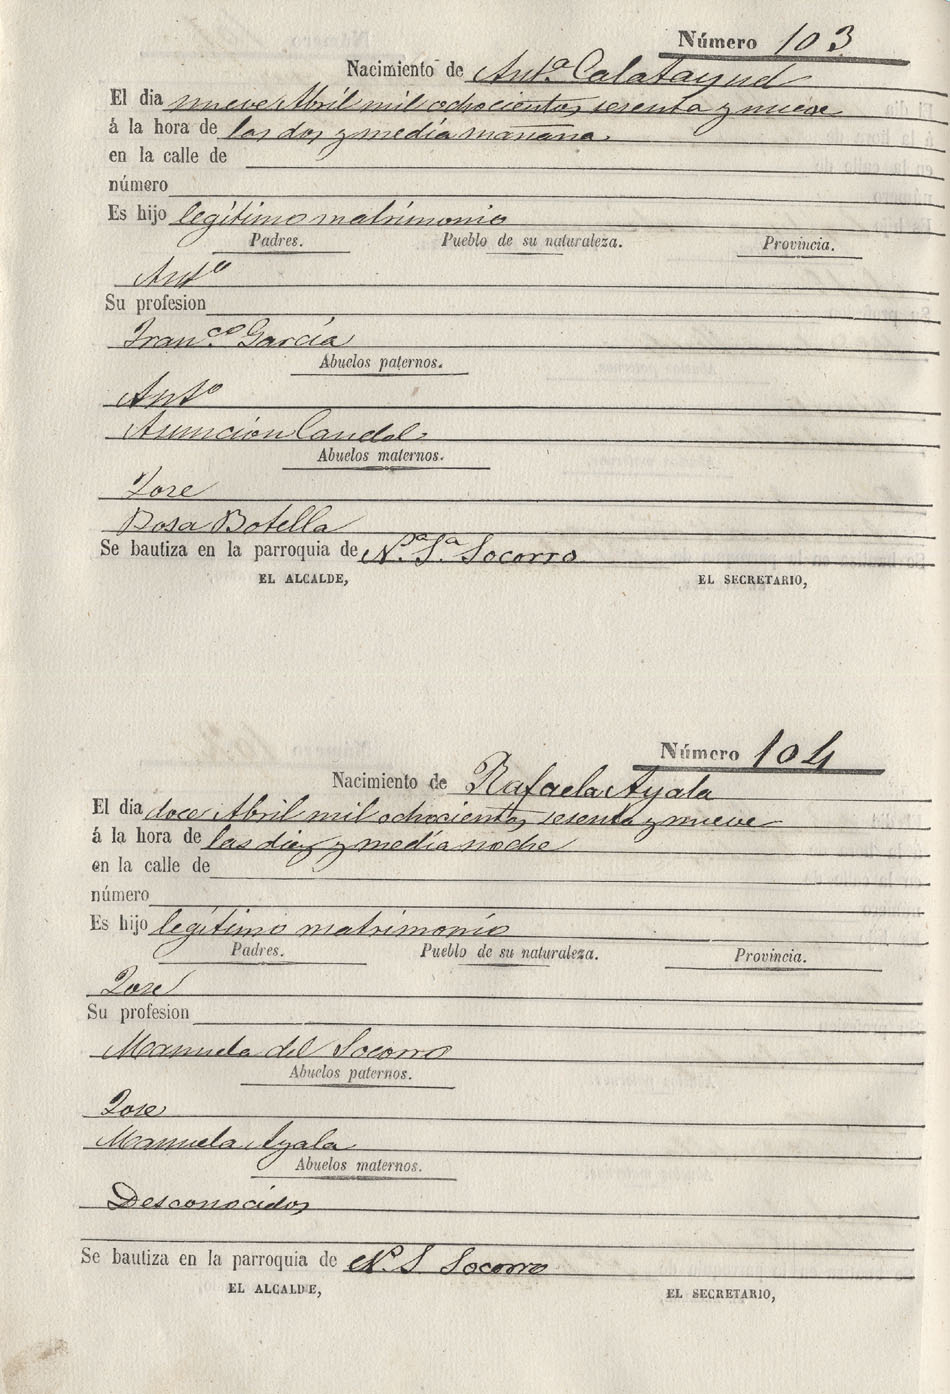 Número 103
Nacimiento de Ant.ª Calatayud
El dia nueve Abril mil ochocientos sesenta y nueve
á la hora de las dos y media mañana
en la calle de
número
Es hijo legítimo matrimonio
Padres. Pueblo de su naturaleza. Provincia.
Antº
Su profesion
Franco García
Abuelos paternos.
Antº
Asuncion Candel
Abuelos maternos.
Jose
Rosa Botella
Se bautiza en la parroquia de N.ª S.ª Socorro
EL ALCALDE, EL SECRETARIO,
Número 104
Nacimiento de Rafaela Ayala
El dia doce Abril mil ochocientos sesenta y nueve
á la hora de las diez y media noche
en la calle de
número
Es hijo legítimo matrimonio
Padres. Pueblo de su naturaleza. Provincia.
Jose
Su profesion
Manuela del Socorro
Abuelos paternos.
Jose
Manuela Ayala
Abuelos maternos.
Desconocidos
Se bautiza en la parroquia de N. S. Socorro
EL ALCALDE, EL SECRETARIO,